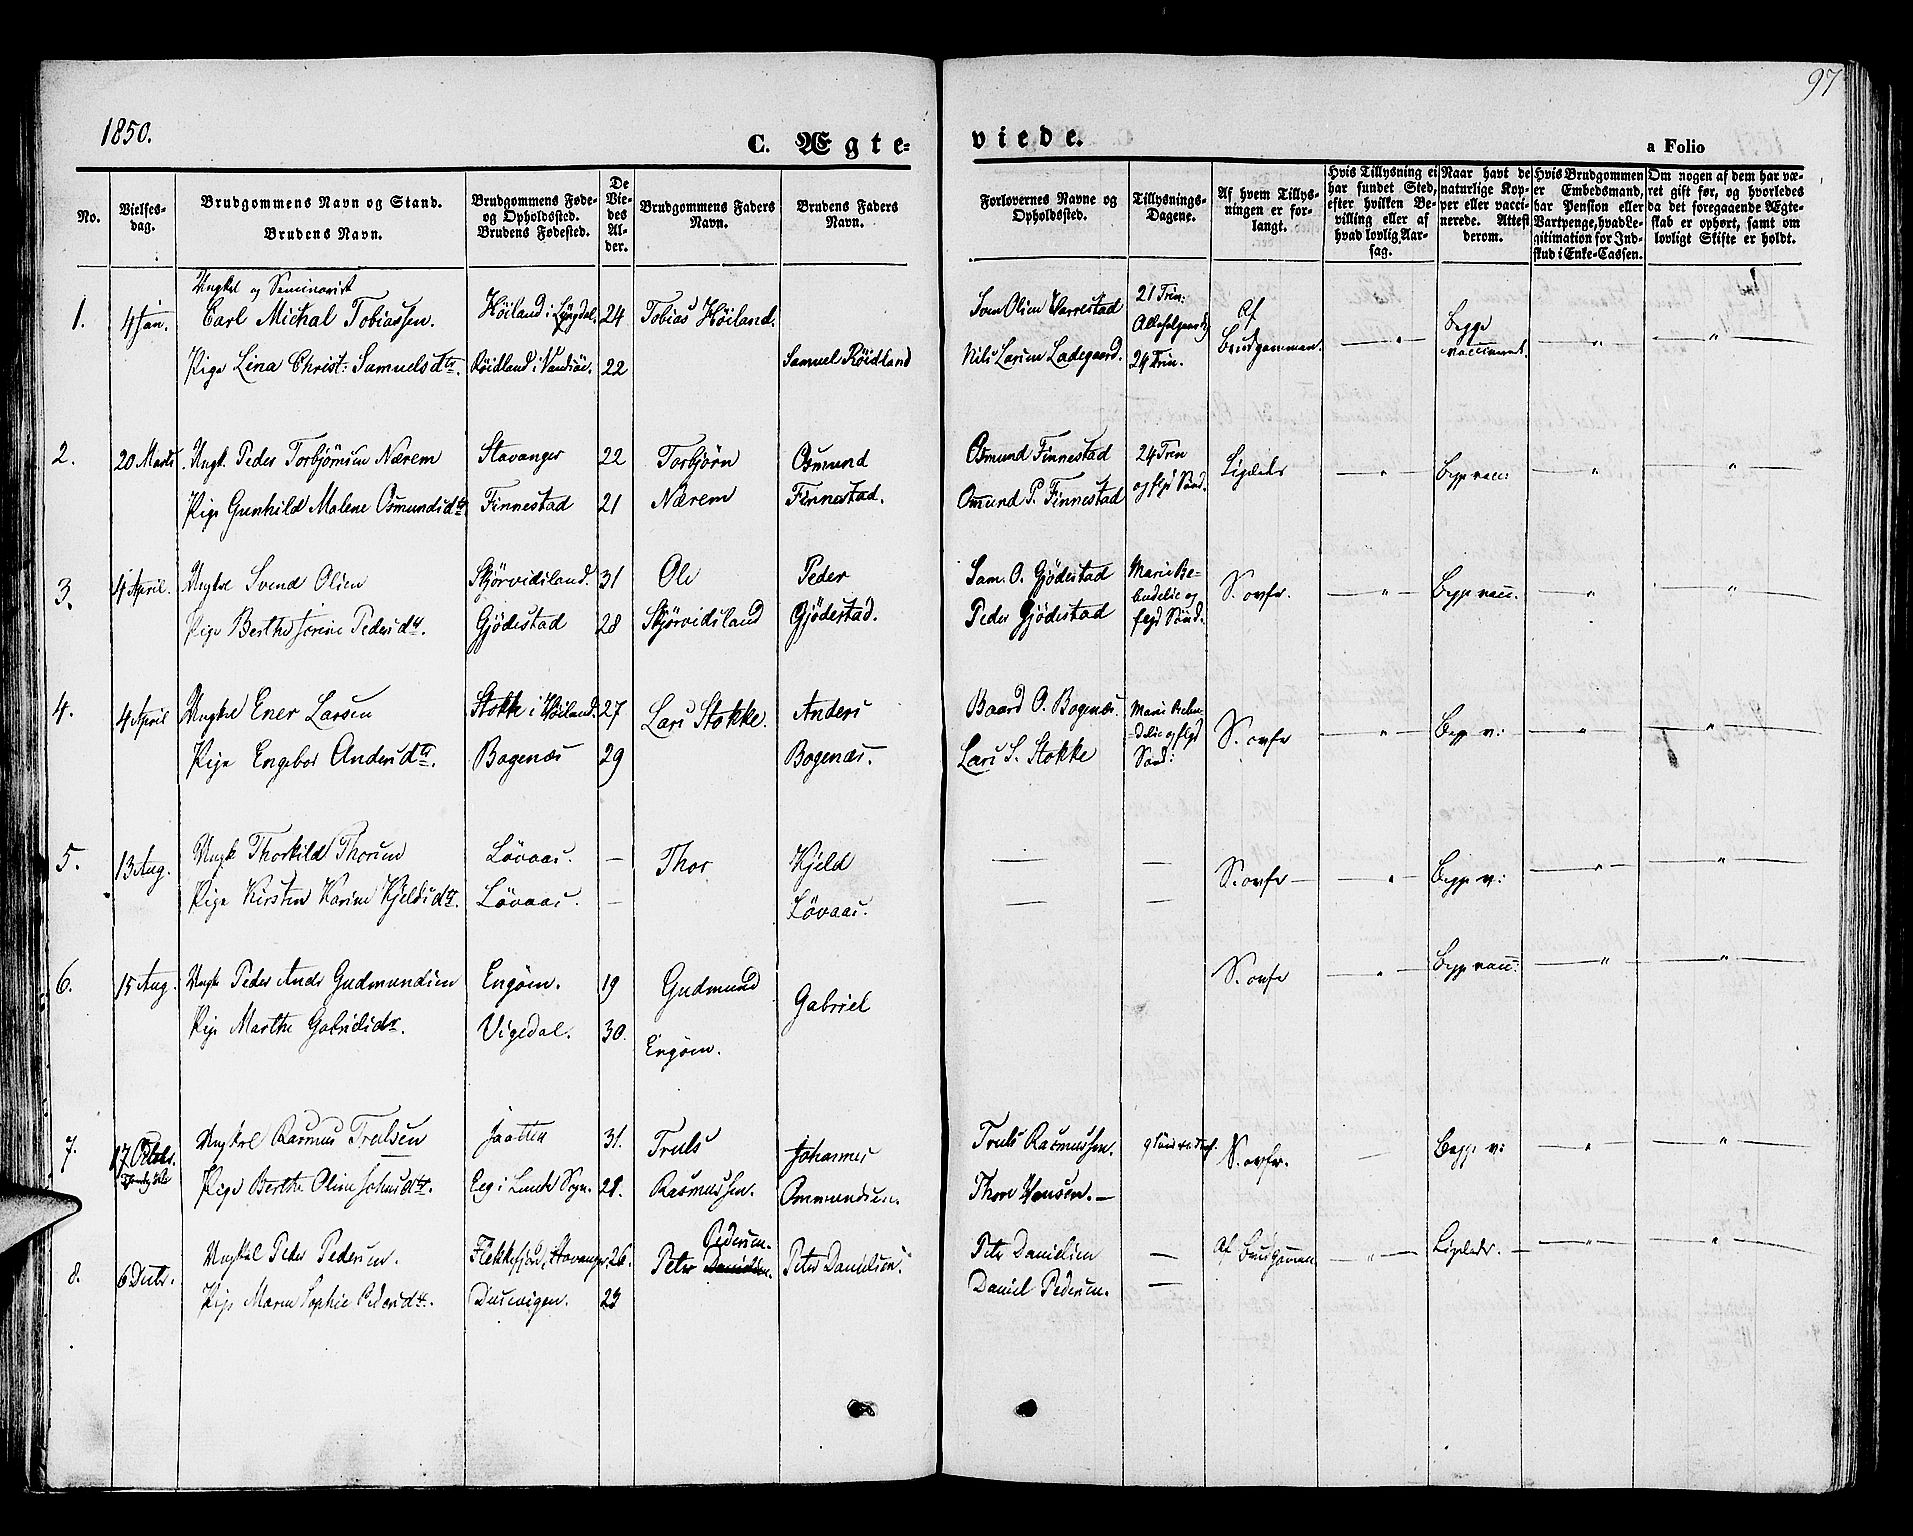 97
1850.
C. Ægte-
viede.
a Folio
No.
Vielses-
dag.
Brudgommens Navn og Stand.
Brudens Navn.
Brudgommens Føde-
og Opholdssted.
Brudens Fødested.
De
Vie-
des
Al-
der.
Brudgommens Faders
Navn.
Brudens Faders
Navn.
Forlovernes Navne og
Opholdssted.
Tillysnings-
Dagene.
Af hvem Tillys-
ningen er for-
langt.
Hvis Tillysning ei
har fundet Sted,
efter hvilken Be-
villing eller af
hvad lovlig Aar-
sag.
Naar havt de
naturlige Kop-
per eller vacci-
nerede. Attest
derom.
Hvis Brudgommen
er Embedsmand,
har Pension eller
Vartpenge, hvad Le-
gitimation for Ind-
skud i Enke-Cassen.
Om nogen af dem har væ-
ret gift før, og hvorledes
da det foregaaende Ægte-
skab er ophørt, samt om
lovligt Skifte er holdt.
1.
4 Jan.
Ungkl og Seminarist
Carl Michal Tobiassen.
Pige Lina Christ: Samuelsdtr.
Høiland i Lyngdal.
Røidland i
24
22
Tobias Høiland.
Samuel Røidland
Sven Olsen Varrestad
Nils Larsen Ladegaard.
21 Trin:
24 Trin.
Af
Brudgommen.
Begge
vaccineret.
2.
20 Marts
Ungk. Peder Torbjørnsen Nærem
Pige Gunhild Malene Osmundsdtr
Stavanger
Finnestad
22
21
Torbjørn
Nærem
Osmund
Finnestad.
Osmund Finnestad
Omund P. Finnestad
24 Trin
og flgd Sønd.
Ligeleds
Begge vacc:
3.
4 April.
Ungkl Svend Olsen
Pige Berthe Serine Pedersdtr.
Skjørvidsland.
Gjödestad
31
28
Ole
Skjørvidsland
Peder
Gjödestad.
Sam. O. Gjödestad
Peder Gjödestad
Marie Be-
budelse og
flgd Sønd.
S. ovfr.
Begge vacc.
4.
4 April
Ungkl Ener Larsen
Pige Engebor Andersdtr.
Stokke i Høiland.
Bogenæs
27
29
Lars Stokke.
Anders
Bogenæs.
Baard O. Bognæs.
Lars S. Stokke
Marie Bebu-
delse og flgd
Sønd:
S. ovfr
Begge v:
5.
13 Aug.
Ungk Thorkild Thorsen
Pige Kirsten Karine Kjeldsdtr.
Lövaas.
Lövaas.
Thor
Kjeld
Lövaas.
S. ovfr
Begge v:
6.
15 Aug.
Ungk Peder Andr Gudmundsen
Pige Marthe Gabrielsdtr.
Engöm.
Vigedal.
19
30.
Gudmund
Engöm.
Gabriel
S. ovfr
Begge vacc:
7.
17 Octobr.
Ungkl Rasmus Trulsen
Pige Berthe Oline Johnsdtr.
Jaatten
Eeg i Lunde Sogn.
31.
28.
Truls
Rasmussen.
Johannes
Ommundsen.
Truls Rasmussen.
Thore Hansen.
S. ovfr.
Begge v:
8.
6 Decbr.
Ungkl Peder Pedersen.
Pige Maren Sophie Pedersdtr.
Flekkefjord, Stavanger
Dusevigen.
26.
23
Pedersen.
Peter Danielsen.
Peter Danielsen.
Petr Danielsen
Daniel Pedersen.
Af Brudgommen
Ligeleds.